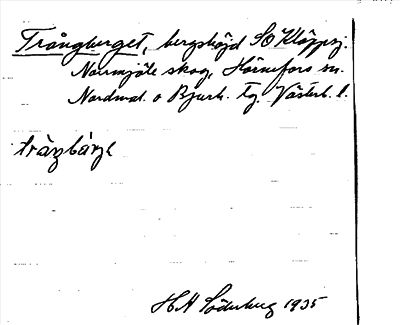 Trångberget, bergshöjd SO Kläppsj.
Norrmjöle skog, Hörnefors sn.
Nordmal. o Bjurh. tg. Västerb. l.
tràŋbárjə
H H Söderberg 1935